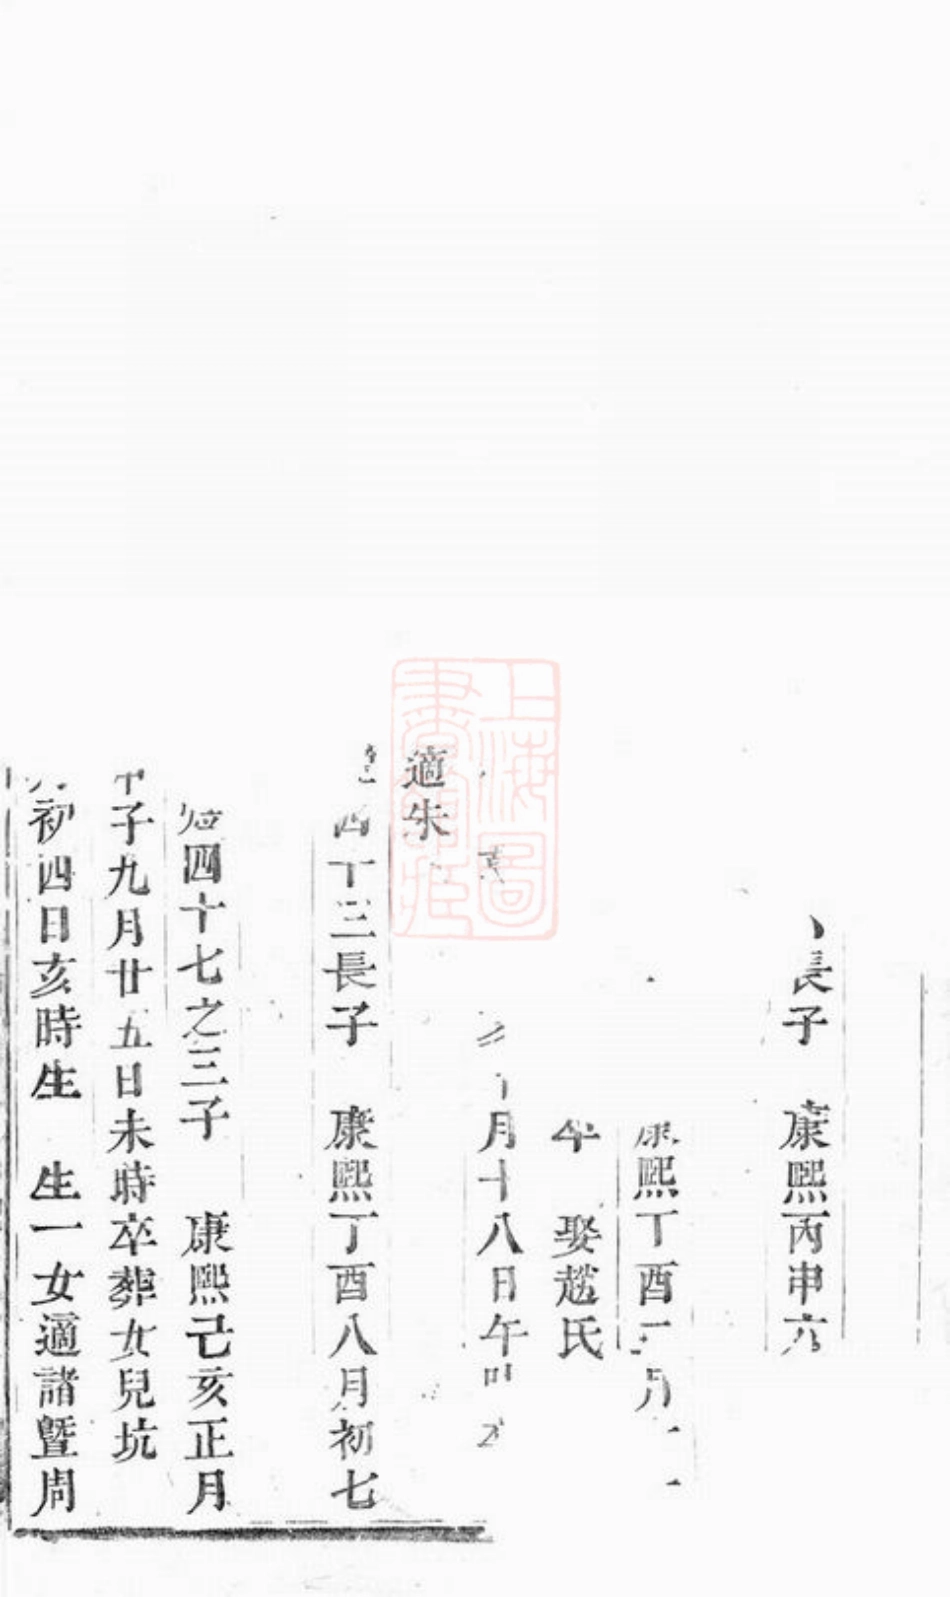 長子　康熙丙申六
熙丁酉
娶趙氏
月十八日午
適朱
四十三長子　康熙丁酉八月初七
四十七之三子　康熙己亥正月
子九月廿五日未時卒葬女兒坑
初四日亥時生　生一女適諸暨周
上海圖書館藏